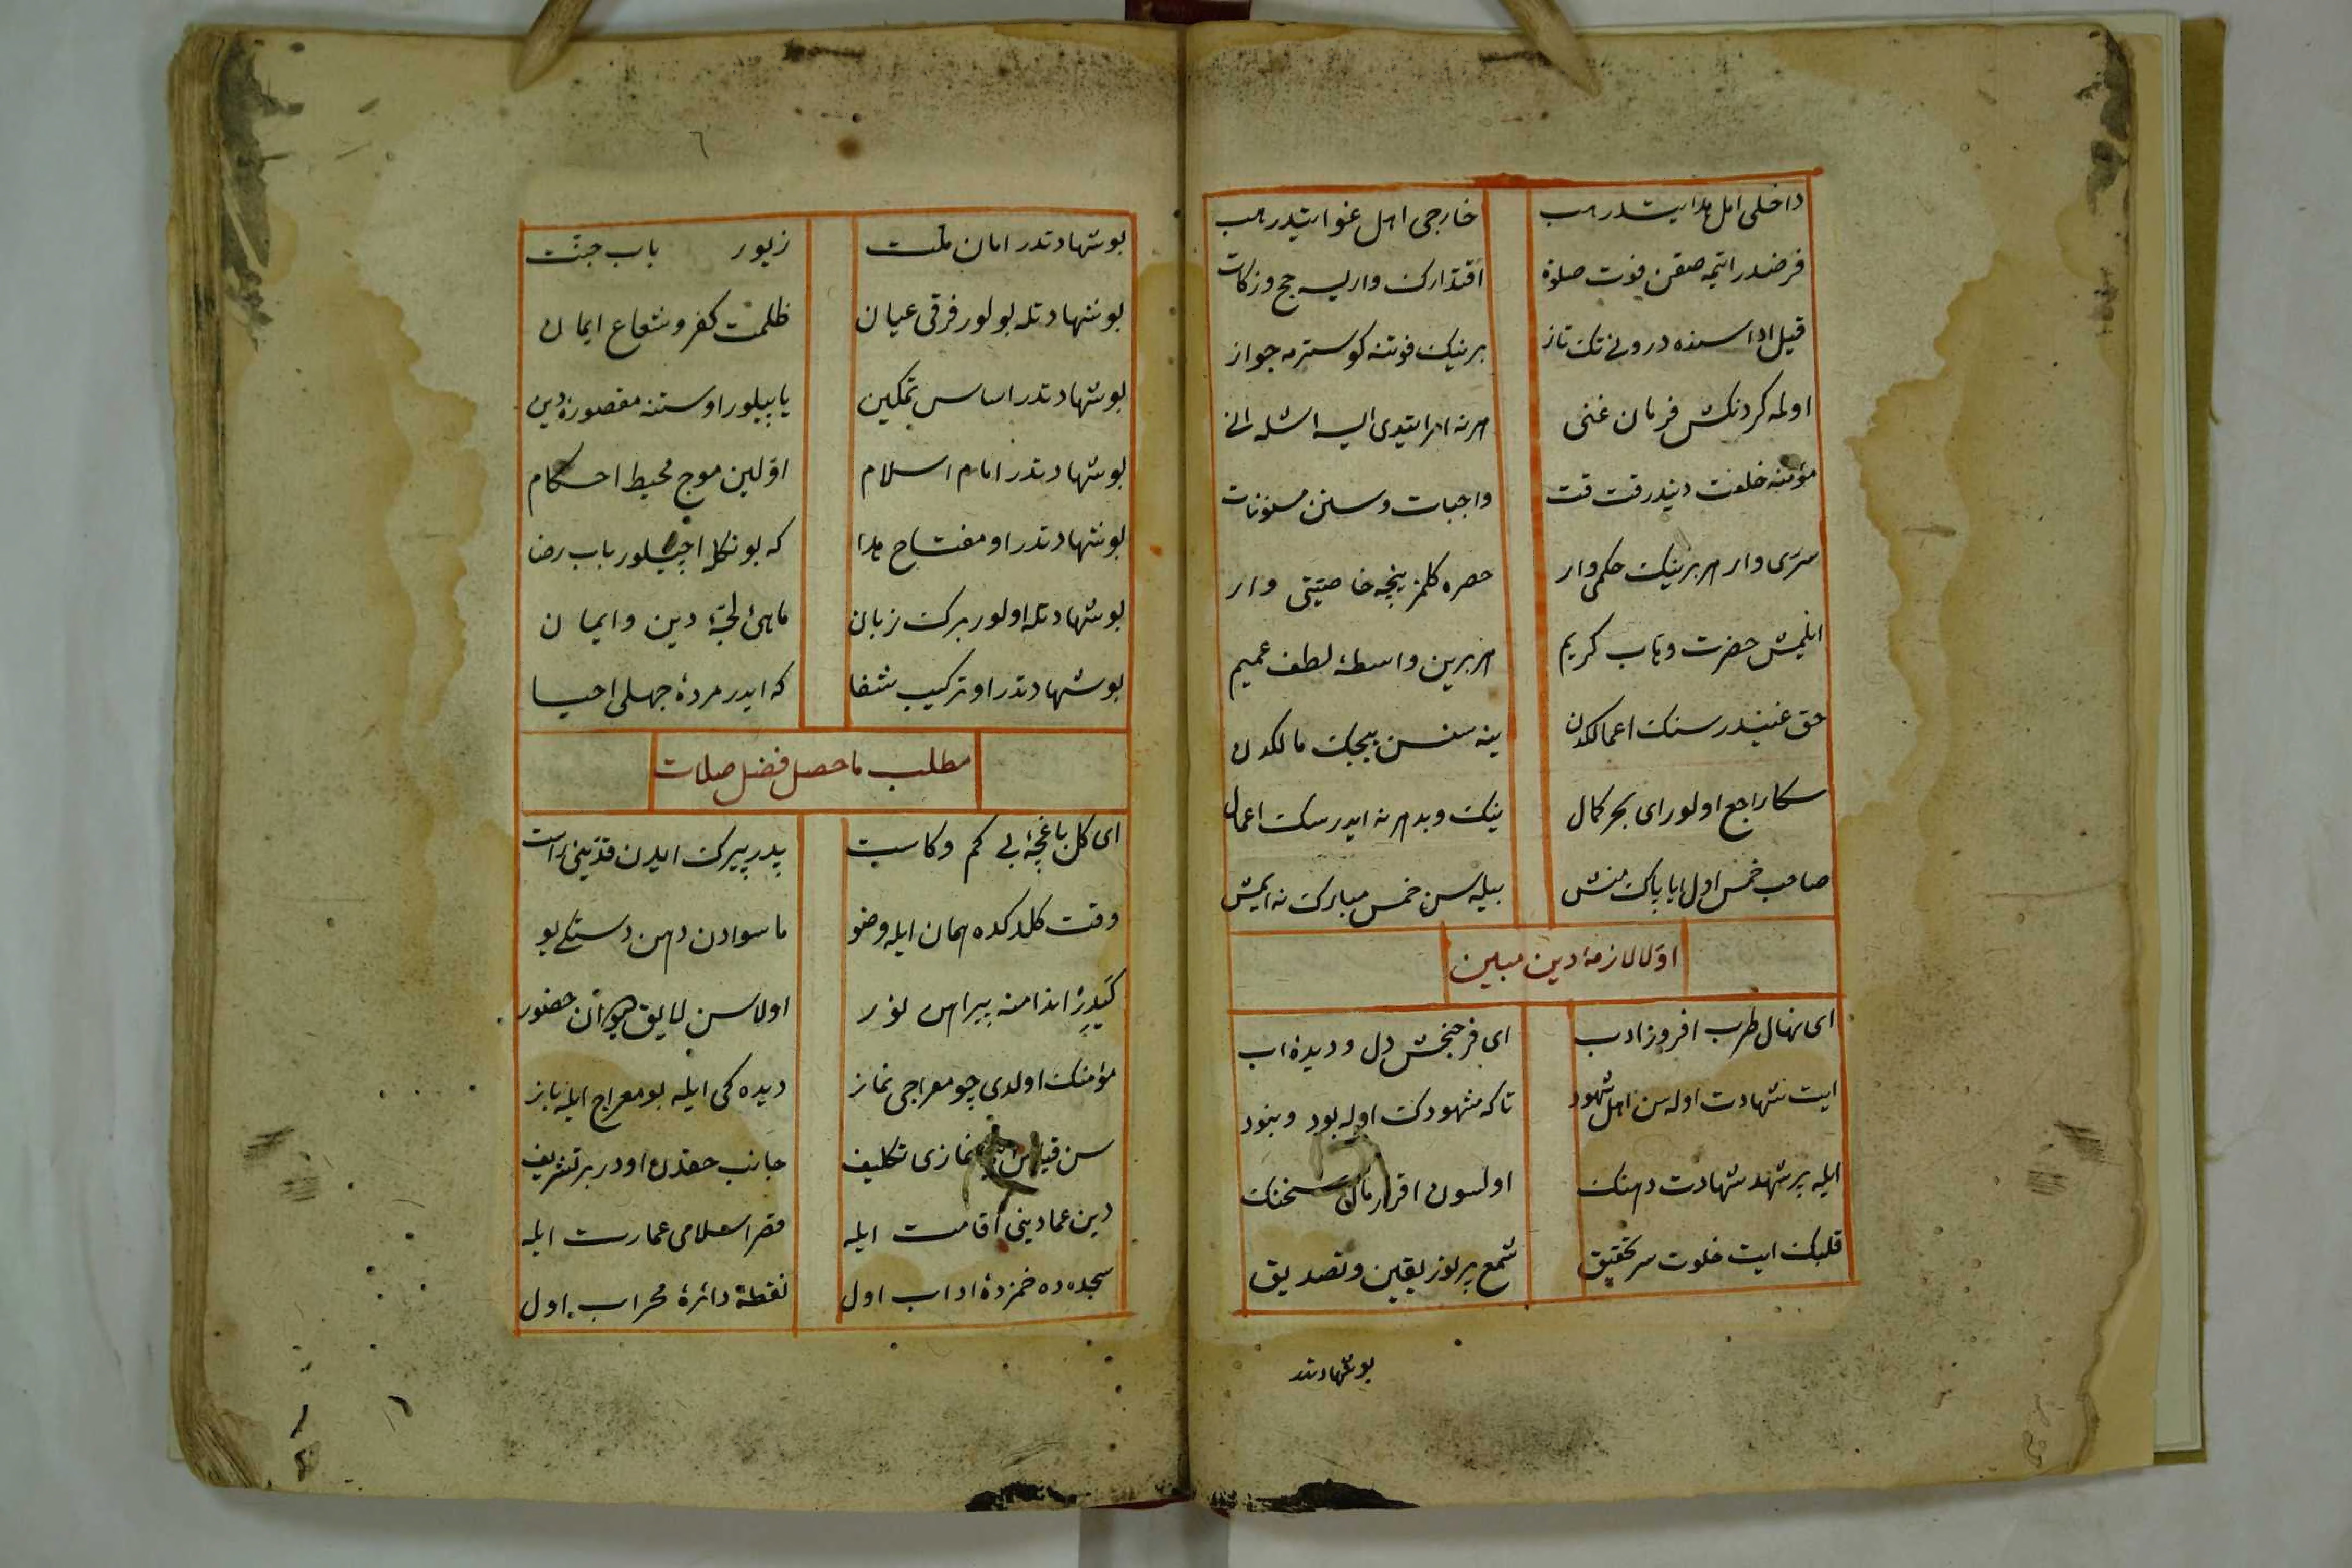 داخلی اهل هدایتدر هب
خارجی اهل غوایتدر هب
فرضدر ایتمه صقن فوت صلوة
اقتدارک واریسه حج وزکات
قیل اداسنده درونی تک تاز
برینک فوتنه کوسترمه جواز
اوله کردنکش فرمان غنی
هرنه امر ایتدی ایسه اشله انی
مؤمنه خلعت دیندر قت قت
واجبات وسنن مسنونات
سری وار هر برینک حکمی وار
حصره کلمز نیچه خاصیتی وار
ایلمیش حضرت وهاب کریم
هر برین واسطهٔ لطف عمیم
حق غنیدر سنک اعمالکدن
ینه سنسن مالکدن
سکا راجع اولور ای بحر کمال
نیک وبد هرنه ایدرسک اعمال
صاحب خمس اول ایا پاک منش
بیله سن خمس مبارک نه ایمش
اولا لازمهٔ دین مبین
ای نهال طرب افروز ادب
ای فرحبخش دل ودیدهٔ اب
ایت شهادت اوله سن اهل شهود
تاکه مشهودک اوله بود ونبود
ایله پر شهد شهادت دهنک
اولسون اقرار سخنک
قلبک ایت خلوت سر تحقیق
شمع پرنور یقین وتصدیق
بوشهادتدر
٦
بوشهادتدر امان ملت
زیور باب جنت
بوشهادتله بولور فرقی عیان
ظلمت کفر وشعاع ایمان
بوشهادتدر اساس تمکین
یاپیلور اوستنه مقصورهٔ دین
بوشهادتدر امام اسلام
اولین موج محیط احکام
بوشهادتدر او مفتاح هدا
که بونکله اچیلور باب رضا
بوشهادتله اولور برک زبان
ماهیٔ لجهٔ دین وایمان
بوشهادتدر او ترکیب شفا
که ایدر مردهٔ جهلی احیا
مطلب ماحصل فضل صلات
ای کل باغچهٔ بی کم وکاست
پدر پیرک ایدن قدینی راست
وقت کلدکده همان ایله وضو
ماسوادن دهن ودستکی یو
اندامنه پیراهن نور
اولاسن لایق حضور
مؤمنک اولدی چو معراجی نماز
دیده کی ایله بو معراج ایله باز
سن نمازی تکلیف
جانب حقدن اودر بر تشریف
دین عمادینی اقامت ایله
قصر اسلامی عمارت ایله
سجده ده خمزدهٔ اداب اول
نقطهٔ دائرهٔ محراب اول